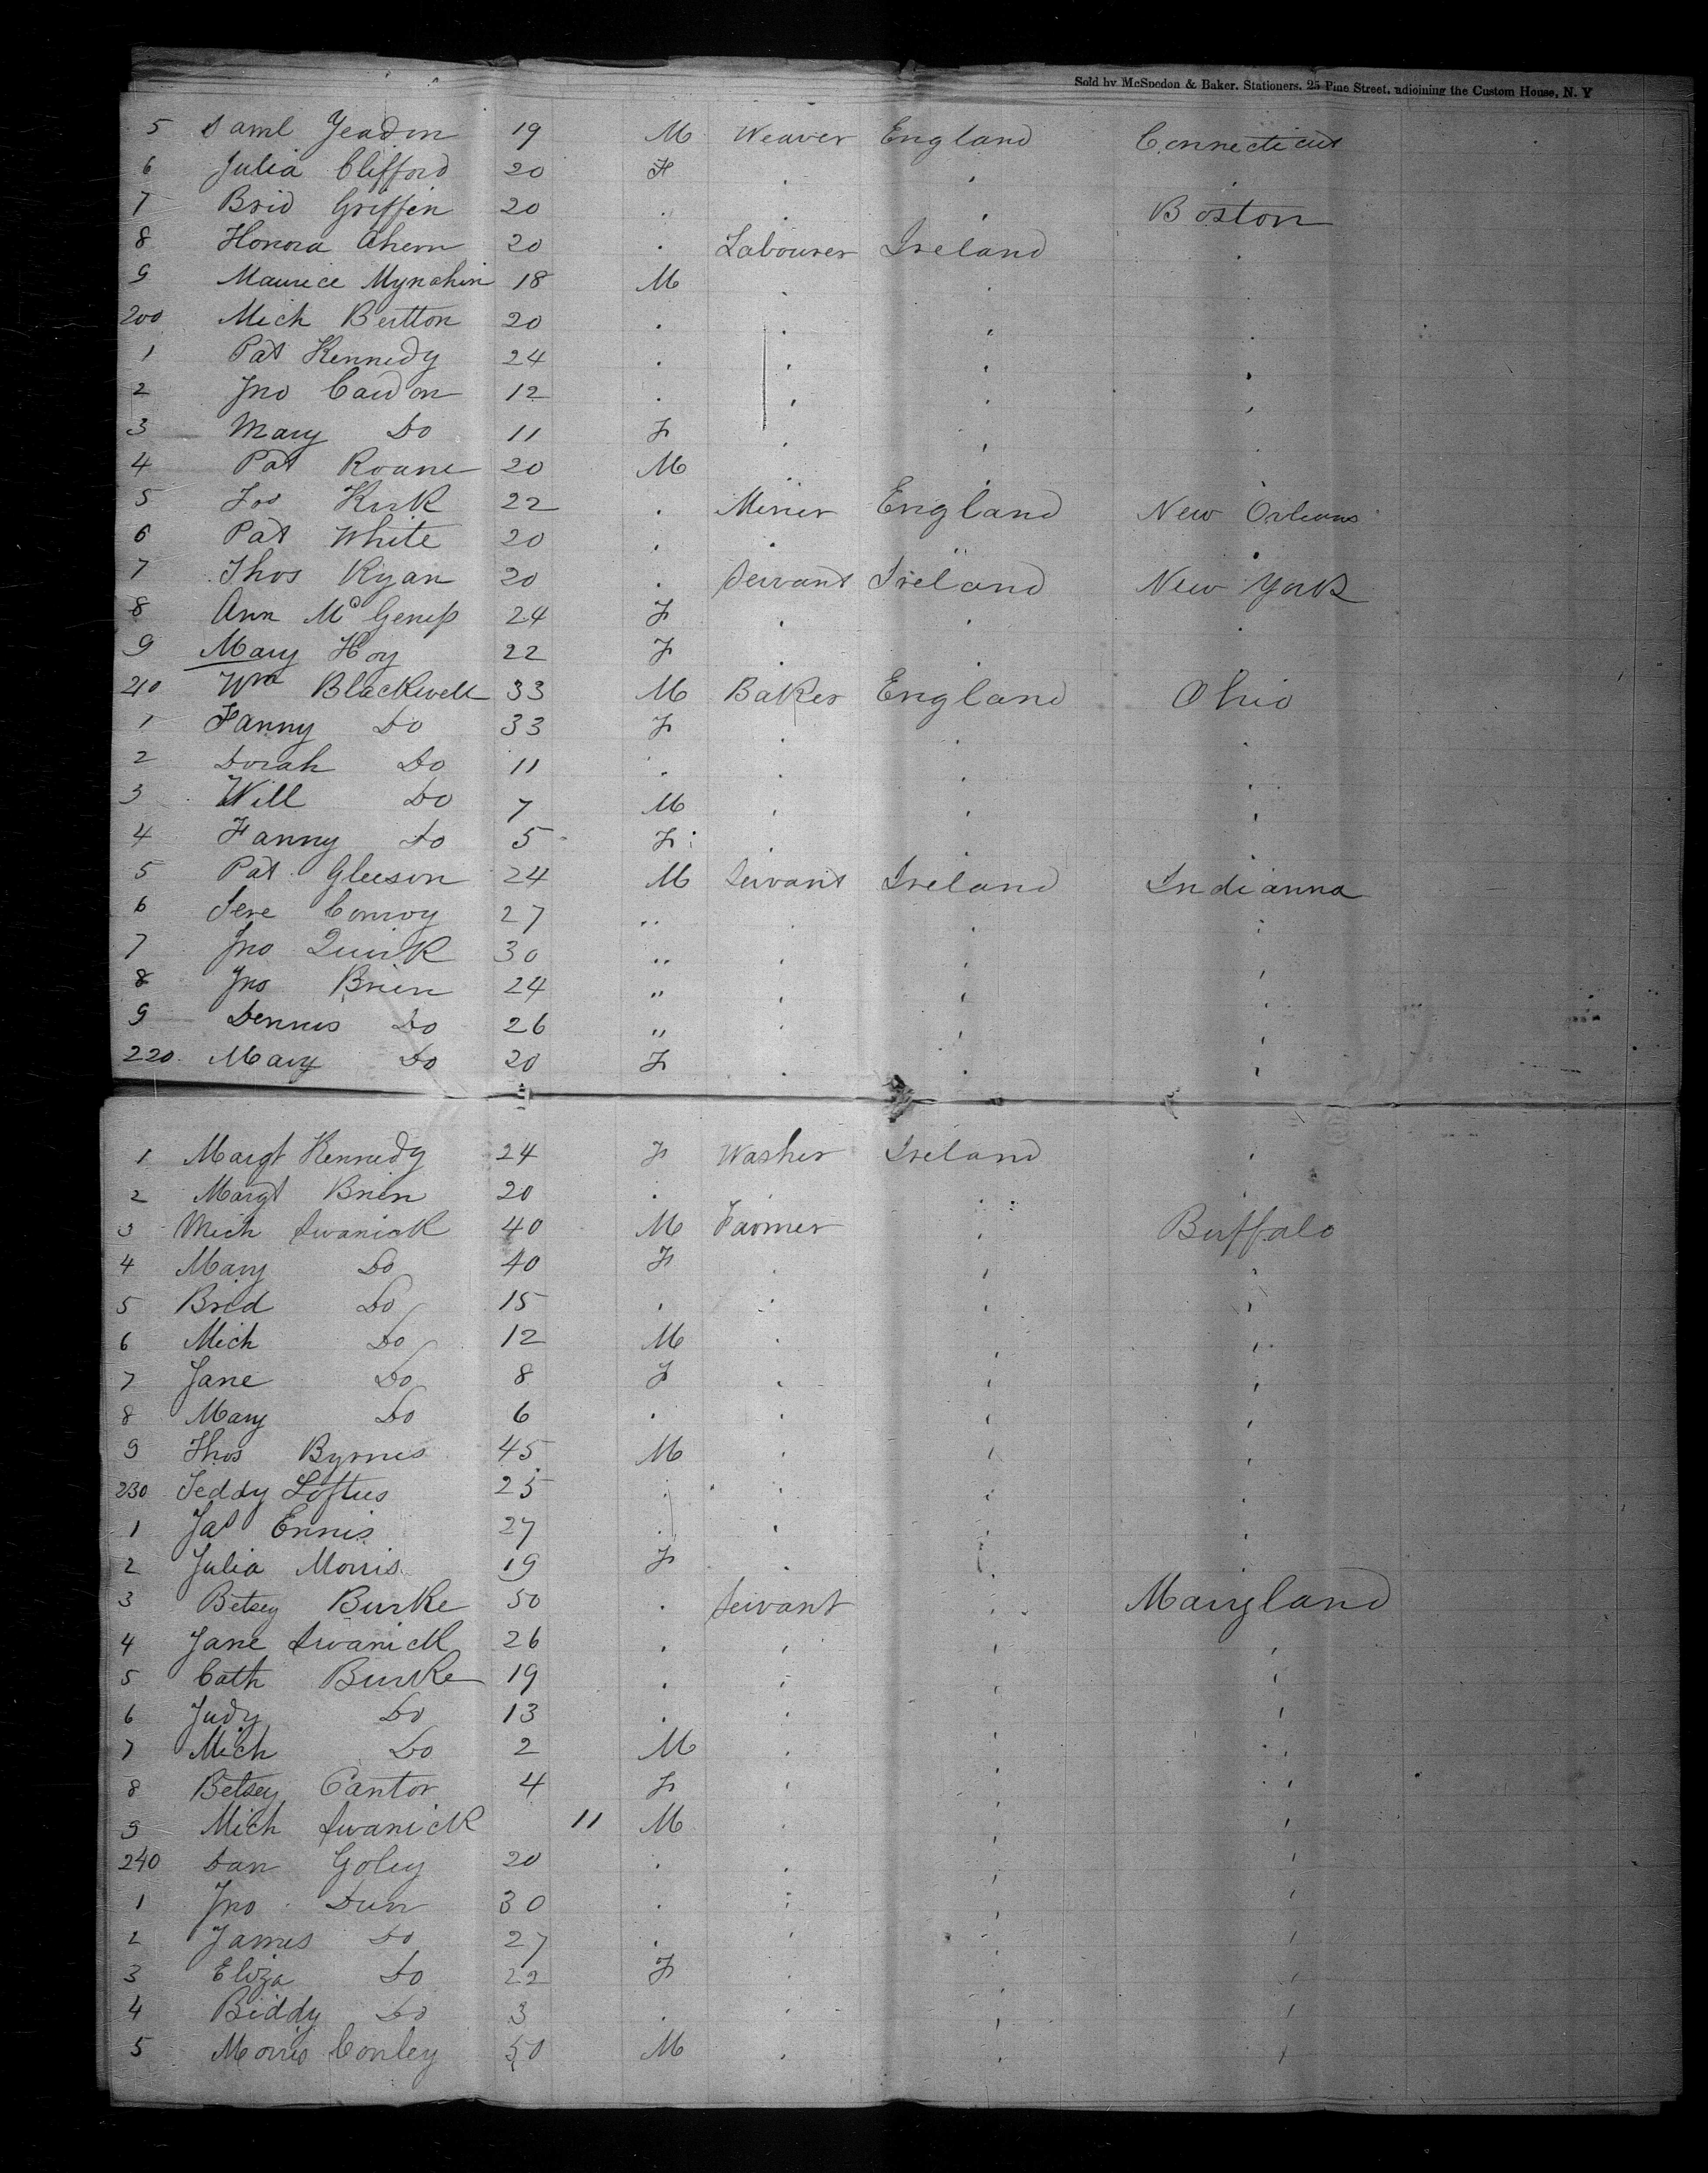 Sold by McSpedon & Baker, Stationers, 25 Pine Street, adjoining the Custom House, N. Y
5 Saml Yeadon 19 M Weaver England Connecticut
6 Julia Clifford 20 F . . .
7 Brid Griffin 20 . . . Boston
8 Honora Ahern 20 . Labourer Ireland .
9 Maurice Mynahin 18 M . . .
200 Mich Bertton 20 . . . .
1 Pat Kennedy 24 . . . .
2 Jno Cawdon 12 . . . .
3 Mary Do 11 F . . .
4 Pat Roane 20 M
5 Jos Kirk 22 . Miner England New Orleans
6 Pat White 20 . . . .
7 Thos Ryan 20 . Servant Ireland New York
8 Ann Mc Geniss 24 F . . .
9 Mary Hoy 22 F . .
210 Wm Blackwell 33 M Baker England Ohio
1 Fanny Do 33 F . . .
2 Dorah Do 11 . . . .
3 Will Do 7 M . . .
4 Fanny Do 5 F . . .
5 Pat Gleeson 24 M Servant Ireland Indianna
6 Jere Conroy 27 " . . .
7 Jno Quirk 30 " . . .
8 Jno Brien 24 " . . .
9 Dennis Do 26 " . . .
220 Mary Do 20 F . . .
1 Margt Kennedy 24 F Washer Ireland .
2 Margt Brien 20 . . . .
3 Mich Swanick 40 M Farmer . Buffalo
4 Mary Do 40 F . . .
5 Brid Do 15 . . . .
6 Mich Do 12 M . . .
7 Jane Do 8 F . . .
8 Mary Do 6 . . . .
9 Thos Byrnes 45 M . . .
230 Teddy Loftus 25 . . . .
1 Jas Ennis 27 . . . .
2 Julia Morris 19 F . .
3 Betsey Burke 50 . Servant . Maryland
4 Jane Swanick 26 . . . .
5 Cath Burke 19 . . . .
6 Judy Do 13 . . . .
7 Mich Do 2 M . . .
8 Betsey Cantor 4 F . . .
9 Mich Swanick 11 M . . .
240 Dan Goley 20 . . . .
1 Jno Dun 30 . . . .
2 James Do 27 . . . .
3 Eliza Do 22 F . . .
4 Biddy Do 3 . . . .
5 Morris Conley 50 M . . .